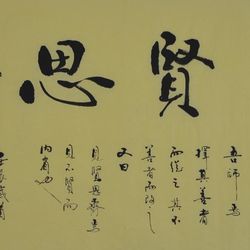 賢思
吾師焉
擇其善者
而從之其不
善者而改之
又曰
見賢思齊焉
見不賢而
內省也